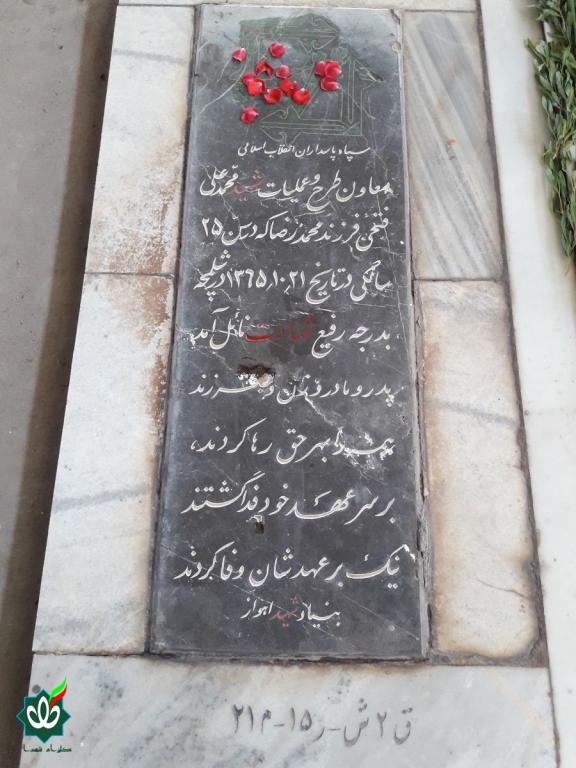 سپاه پاسداران انقلاب اسلامی
معاون طرح و عملیات شهید محمد علی
فتحی فرزند محمدرضا که در سن ۲۵
سالگی در تاریخ ۱۳۶۵٫۱۰٫۲۱ در شلمچه
بدرجه رفیع شهادت نائل آمد
پدر و مادر و زن و فرزند
همه را بهر حق رها کردند،
بر سر عهد خود فدا گشتند
نیک بر عهدشان وفا کردند
بنیاد شهید اهواز
ق ۲ ش-ر ۱۵-م ۲۱